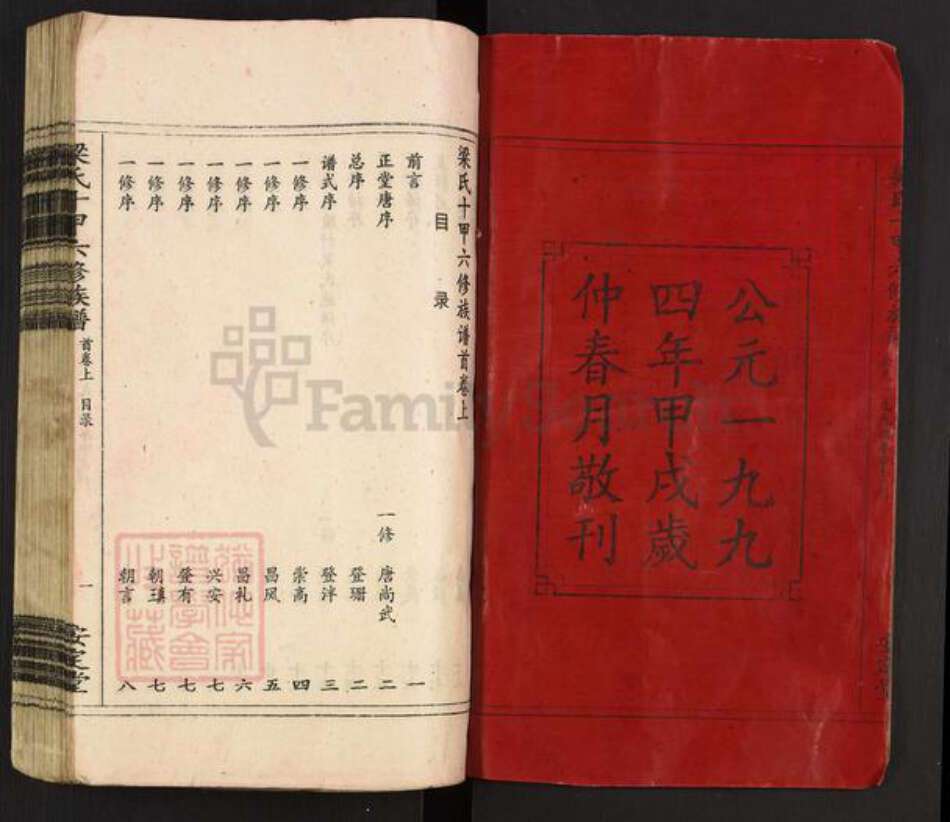 公元一九九
四年甲戌歲
仲春月敬刊
梁氏十甲六修族谱首卷上
目录
前言 一
正堂唐序 一修 唐尚武 二
总序 登珊 二
谱式序 登泮 三
一修序 崇高 四
一修序 昌凤 五
一修序 昌礼 六
一修序 兴安 七
一修序 登有 七
一修序 朝瑱 七
一修序 朝言 八
梁氏十甲六修族谱 首卷上 目录 一 安定堂
FamilySearch